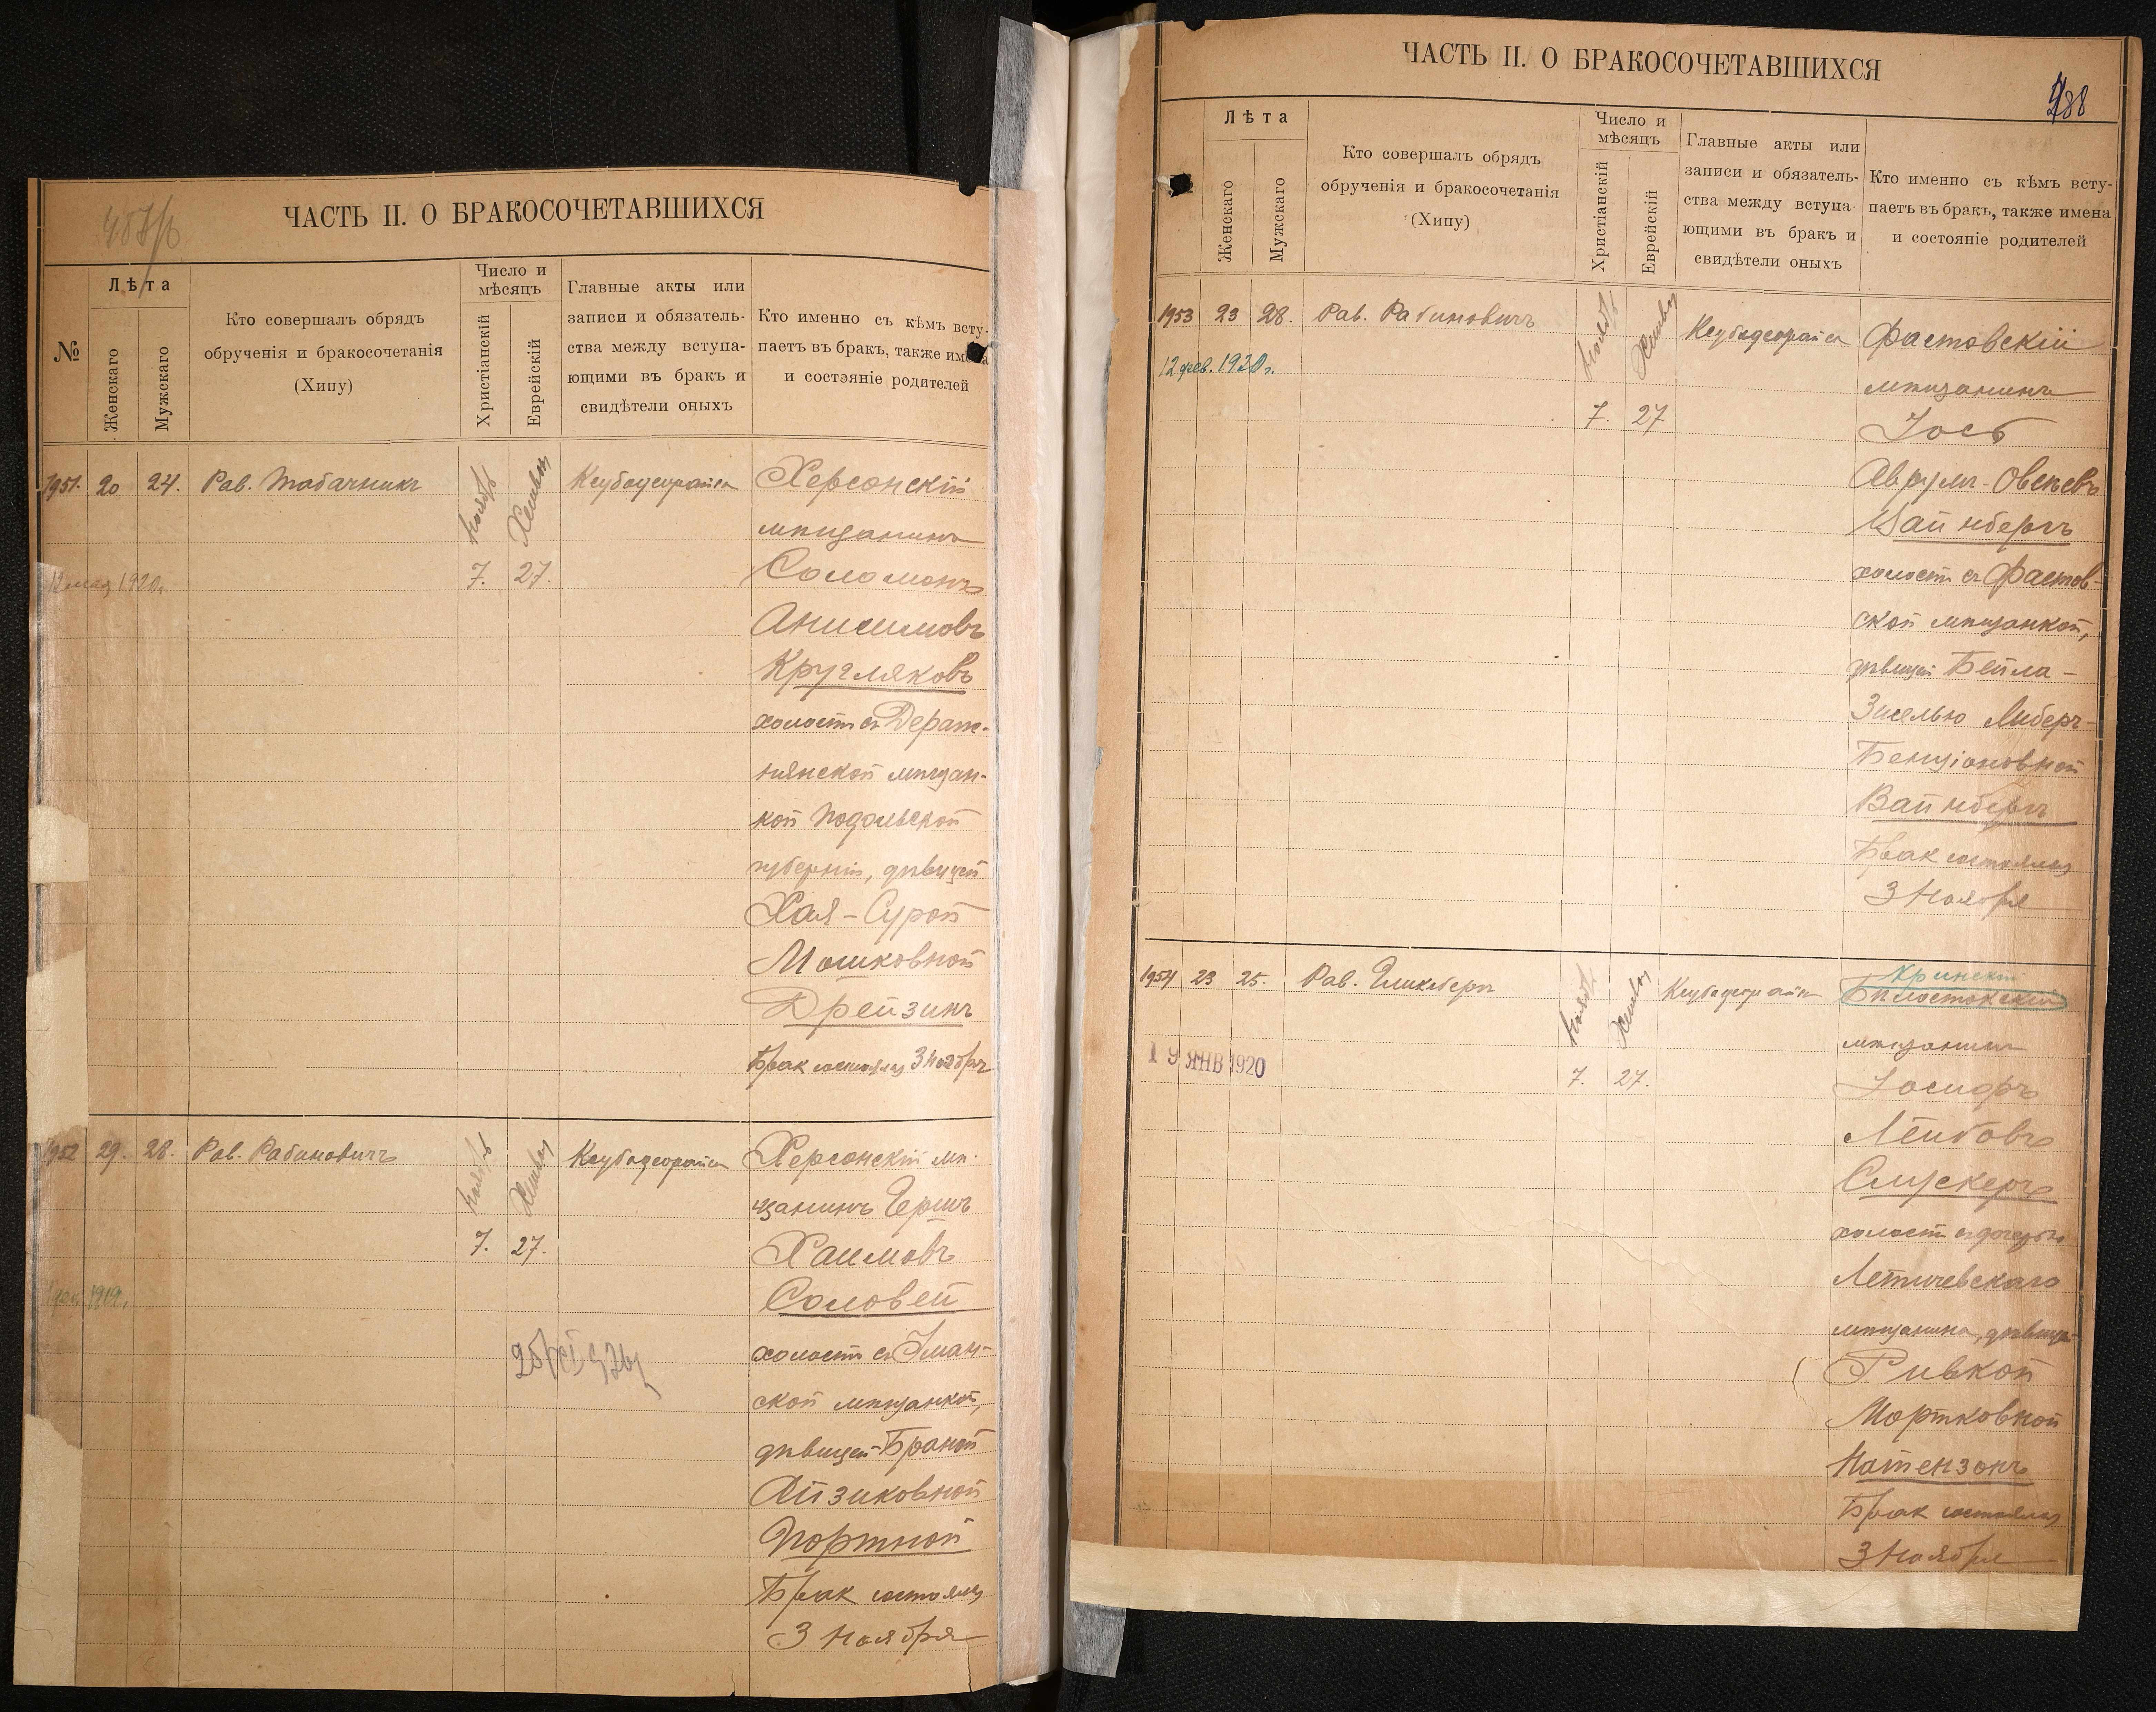 ЧАСТЬ II. О БРАКОСОЧЕТАВШИХСЯ
№
Лѣта
Женскаго
Мужскаго
Кто совершалъ обрядъ
обрученія и бракосочетанія
(Хипу)
Число и
мѣсяцъ
Христіанскій
Еврейскій
Главные акты или
записи и обязатель-
ства между вступа-
ющими въ бракъ и
свидѣтели оныхъ
Кто именно съ кѣмъ всту-
паетъ въ бракъ, также имена
и состояніе родителей
1951. 20 24. Рав. Табачникъ
Ноябрь Хешван
7. 27.
Херсонскій
мѣщанинъ
Соломонъ
Анисимовъ
Кругляковъ
холост съ Дераж-
нянской мѣщан-
кой Подольской
губерніи, дѣвицей
Хая-Сурой
Мошковной
Дрейзинъ
Брак состоялся 3 Ноября
1952 29. 28. Рав. Рабиновичъ
Ноябрь Хешван
7. 27.
1919.
Херсонскій мѣ-
щанинъ Герш
Хаимовъ
Соловей
холост съ Уман-
ской мѣщанкой,
дѣвицей Браной
Айзиковной
Портной
Брак состоялся
3 Ноября
ЧАСТЬ II. О БРАКОСОЧЕТАВШИХСЯ
488
Лѣта
Женскаго
Мужскаго
Кто совершалъ обрядъ
обрученія и бракосочетанія
(Хипу)
Число и
мѣсяцъ
Христіанскій
Еврейскій
Главные акты или
записи и обязатель-
ства между вступа-
ющими въ бракъ и
свидѣтели оныхъ
Кто именно съ кѣмъ всту-
паетъ въ бракъ, также имена
и состояніе родителей
1953 23 28. Рав. Рабиновичъ
12 фев. 1920 г.
Ноябрь Хешван
7. 27
Фастовскій
мѣщанинъ
Іось
Аврум-Овсеевъ
Вайнбергъ
холост съ Фастов-
ской мѣщанкой,
дѣвицей Бейла-
Зиселью Либеръ-
Бенціоновной
Вайнбергъ
Брак состоялся
3 Ноября
1954 23 25. Рав. Гликсберг
19 ЯНВ 1920
Ноябрь Хешван
7. 27.
Кринскій
Бѣлостокскій
мѣщанин
Іосифъ
Лейбовъ
Слуцкеръ
холост съ дочерью
Летичевскаго
мѣщанина, дѣвицей
Ривкой
Мортковной
Натензонъ
Брак состоялся
3 Ноября